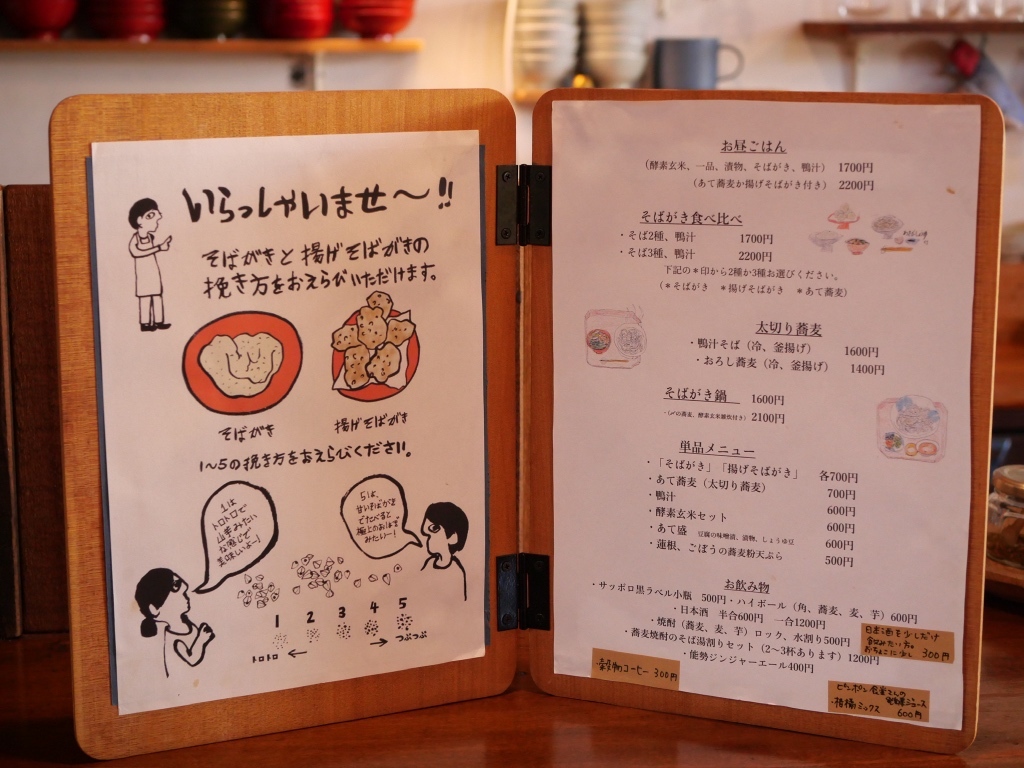 いらっしゃいませ〜!!
そばがきと揚げそばがきの
挽き方をおえらびいただけます。
そばがき
揚げそばがき
1〜5の挽き方をおえらびください。
1は
トロトロで
山芋みたい
な感じで
美味しいよー」
5は、
甘いそばがきま
でたべると
極上のおはぎ
みたいー!
1 2 3 4 5
トロトロ ← → つぶつぶ
お昼ごはん
（酵素玄米、一品、漬物、そばがき、鴨汁） 1700円
（あて蕎麦か揚げそばがき付き） 2200円
そばがき食べ比べ
・そば2種、鴨汁 1700円
・そば3種、鴨汁 2200円
下記の＊印から2種か3種お選びください。
（＊そばがき ＊揚げそばがき ＊あて蕎麦）
太切り蕎麦
・鴨汁そば（冷、釜揚げ） 1600円
・おろし蕎麦（冷、釜揚げ） 1400円
そばがき鍋 1600円
・（〆の蕎麦、酵素玄米雑炊付き）2100円
単品メニュー
・「そばがき」「揚げそばがき」 各700円
・あて蕎麦（太切り蕎麦） 700円
・鴨汁 600円
・酵素玄米セット 600円
・あて盛 豆腐の味噌漬、漬物、しょうゆ豆 600円
・蓮根、ごぼうの蕎麦粉天ぷら 500円
お飲み物
・サッポロ黒ラベル小瓶 500円・ハイボール（角、蕎麦、麦、芋）600円
・日本酒 半合600円 一合1200円
・焼酎（蕎麦、麦、芋）ロック、水割り500円
・蕎麦焼酎のそば湯割りセット（2〜3杯あります）1200円
・能勢ジンジャーエール400円
日本酒を少しだけ
飲みたい方。
おちょこに少し 300円
・穀物コーヒー 300円
ピンポン食堂さんの
・柑橘ミックス 600円